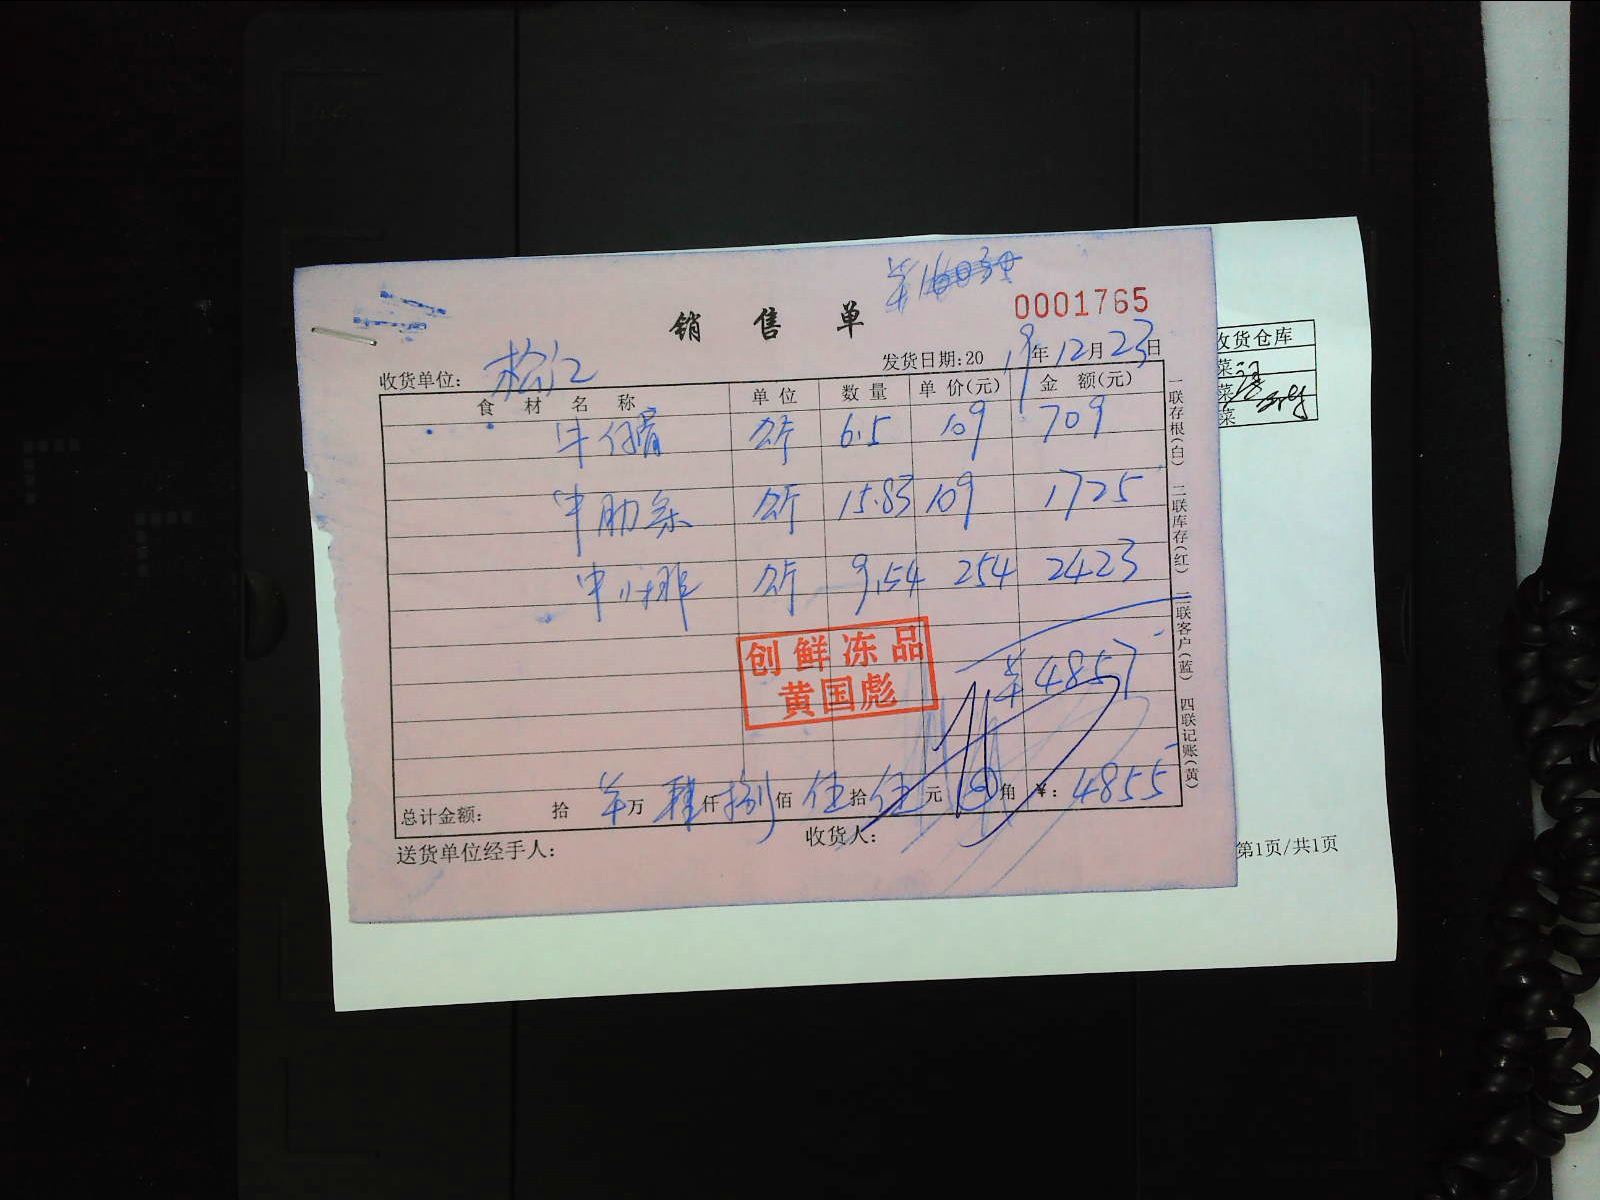 销 售 单
0001765
收货单位: 松江
发货日期:2019年12月23日
食 材 名 称 单 位 数 量 单 价(元) 金 额(元)
牛仔骨 公斤 6.5 109 709
牛肋条 公斤 15.83 109 1725
牛小排 公斤 9.54 254 2423
创鲜冻品
黄国彪
¥4857
总计金额: 拾 万 仟 捌 佰 伍 拾 伍 元 角 ¥: 4855
送货单位经手人: 收货人:
一联存根(白) 二联库存(红) 三联客户(蓝) 四联记账(黄)
收货仓库
菜
菜
菜
第1页/共1页